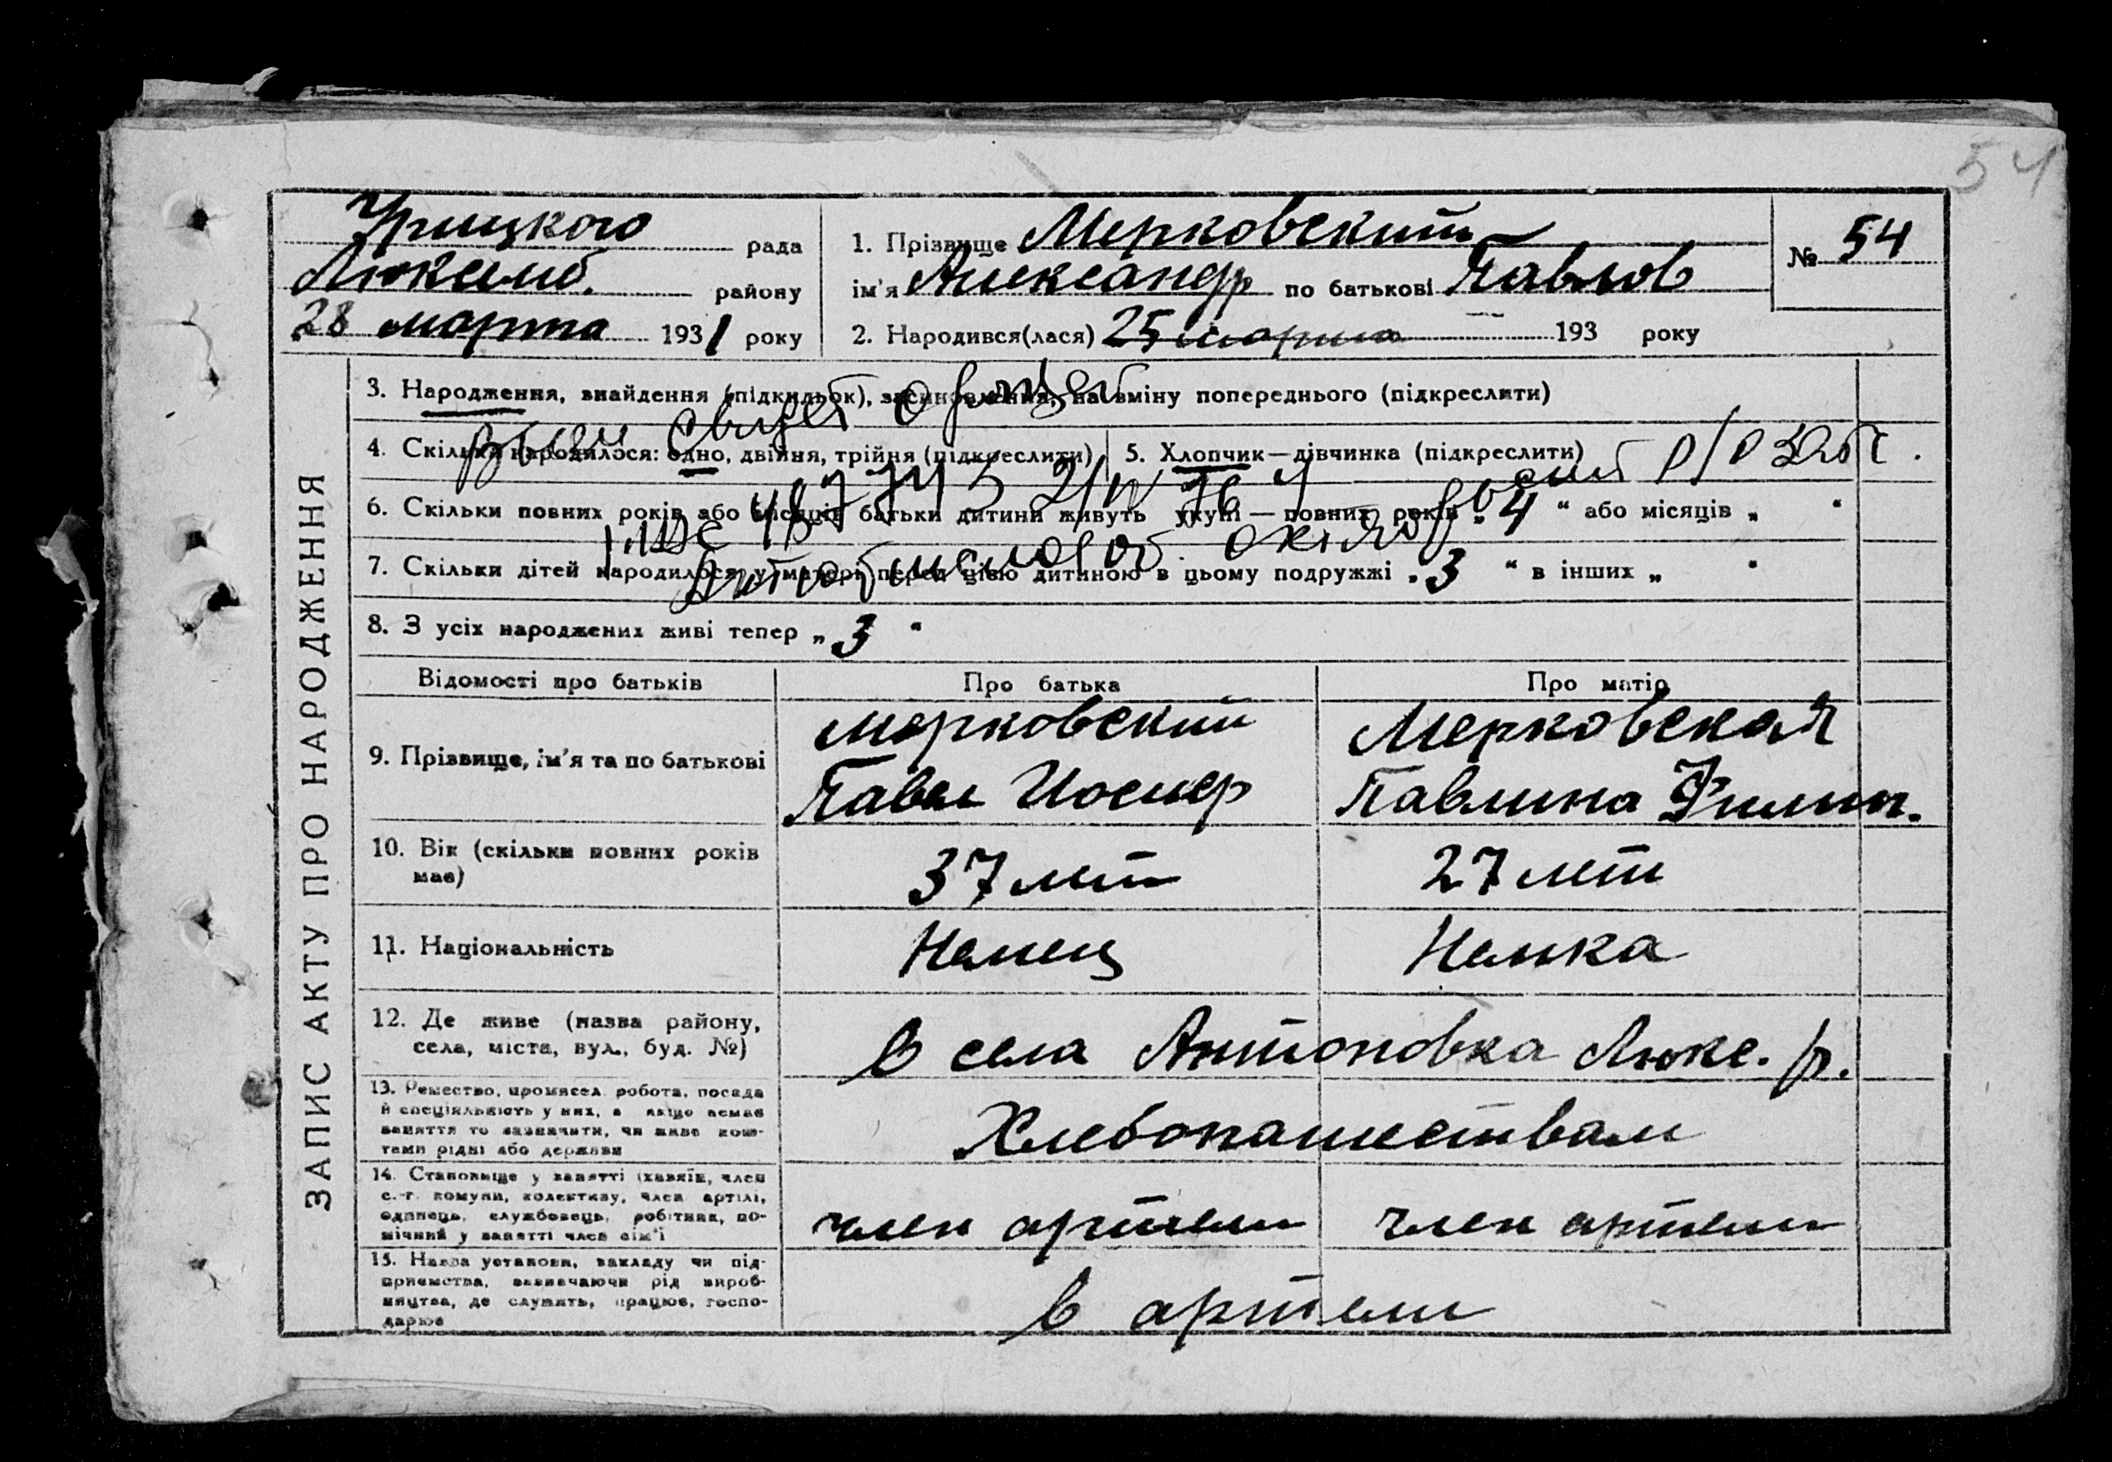 54
Урицкого рада
Люксемб. району
28 марта 1931 року
1. Прізвище Мерковский
ім'я Александр по батькові Павлов
2. Народився(лася) 25 марта 193 року
№ 54
ЗАПИС АКТУ ПРО НАРОДЖЕННЯ
3. Народження, знайдення (підкидьок), усиновлення, на зміну попереднього (підкреслити)
4. Скільки народилося: одно, двійня, трійня (підкреслити)
5. Хлопчик—дівчинка (підкреслити)
6. Скільки повних років або місяців батьки дитини живуть укупі — повних років „4“ або місяців „ “
7. Скільки дітей народилося у матери перед цією дитиною в цьому подружжі „3“ в інших „ “
8. З усіх народжених живі тепер „3“
Відомості про батьків
Про батька
Про матір
9. Прізвище, ім'я та по батькові
Мерковский
Павел Иосиф
Мерковская
Павлина Филип.
10. Вік (скільки повних років
має)
37 лет
27 лет
11. Національність
Немец
Немка
12. Де живе (назва району,
села, міста, вул., буд. №)
в села Антоновка Люкс. р.
13. Ремество, промисел, робота, посада
й спеціяльність у них, а якщо немає
заняття то зазначити, чи живе кош-
тами рідні або держави
Хлебопашествам
14. Становище у занятті (хазяїн, член
с.-г. комуни, колективу, член артілі,
одинець, службовець, робітник, по-
мічний у занятті член сім'ї
член артели
член артели
15. Назва установи, закладу чи під-
приємства, зазначаючи рід вироб-
ництва, де служить, працює, госпо-
дарює
в артели